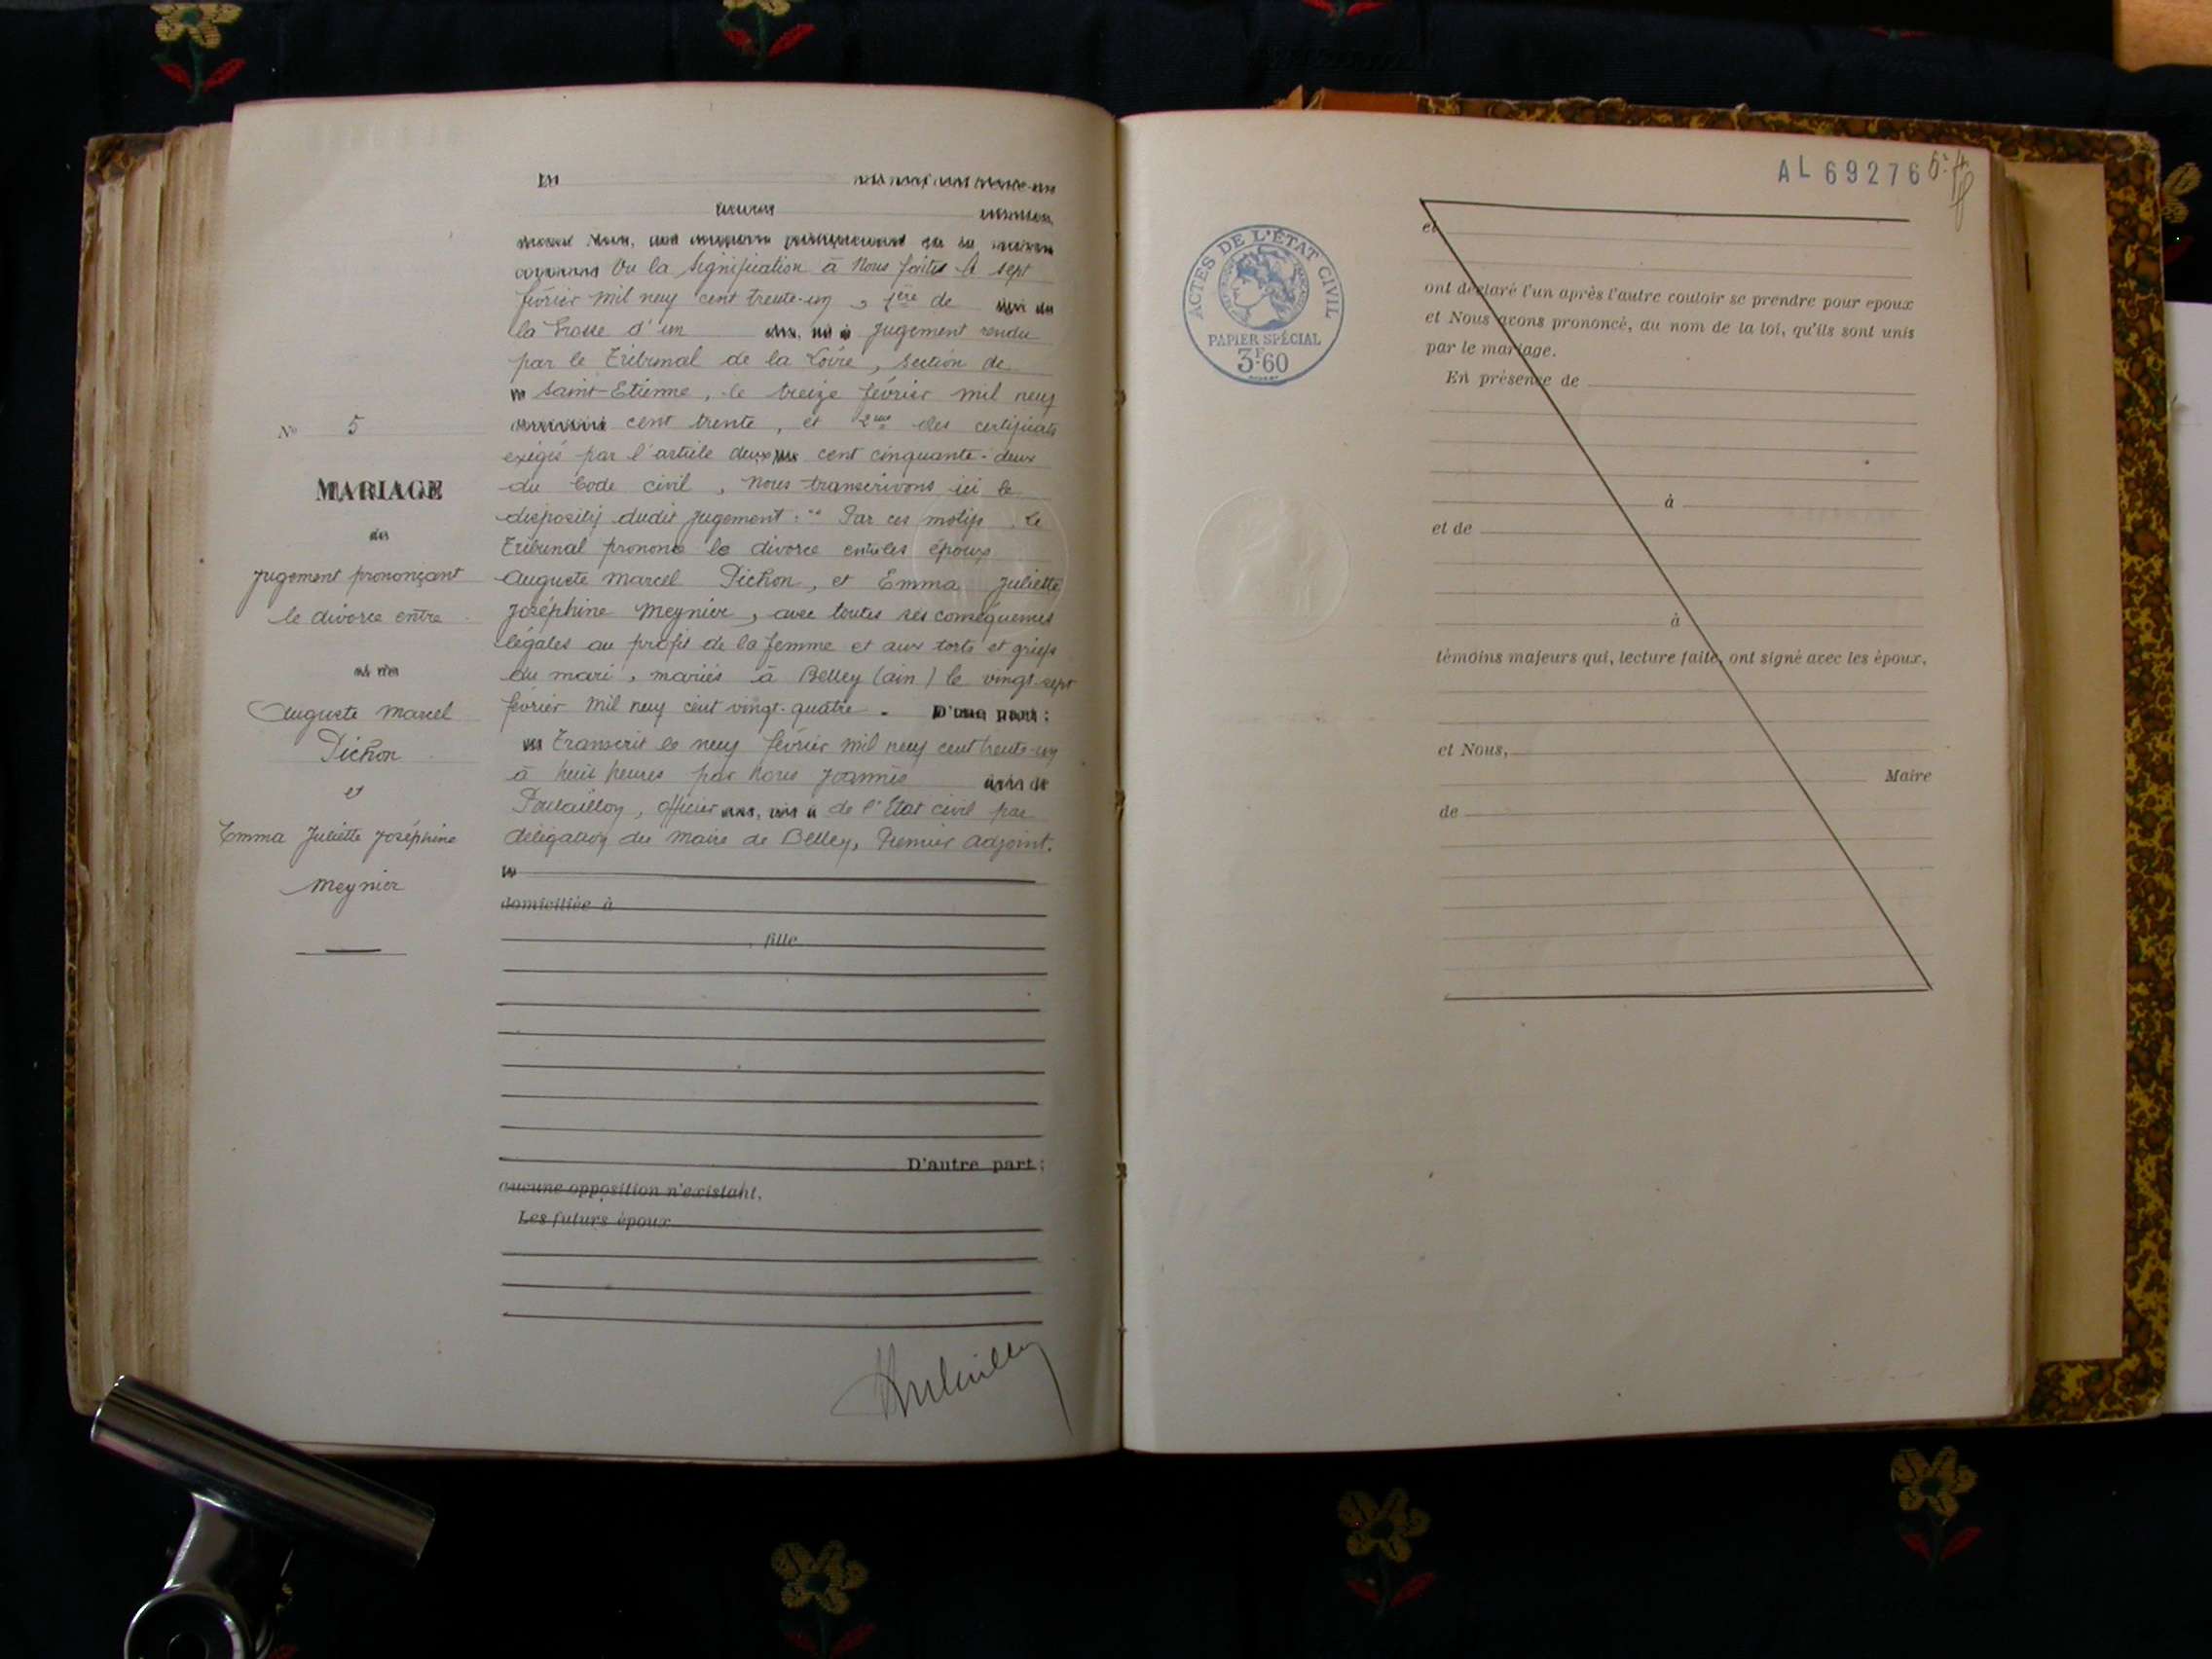 Vu la signification à Nous faites le sept
février mil neuf cent trente-un, 1ère de
la Grosse d'un jugement rendu
par le Tribunal de la Loire, section de
Saint-Etienne, le treize février mil neuf
N° 5
cent trente, et 2me des certificats
exigés par l'article deux cent cinquante-deux
MARIAGE
du Code civil, Nous transcrivons ici le
dispositif dudit jugement : " Par ces motifs, Le
Tribunal prononce le divorce entre les époux
jugement prononçant
Auguste Marcel Pichon, et Emma Juliette
le divorce entre
Joséphine Meynier, avec toutes ses conséquences
légales au profit de la femme et aux torts et griefs
du mari, mariés à Belley (ain) le vingt-sept
Auguste Marcel
février mil neuf cent vingt-quatre. D'une part :
Pichon
Transcrit le neuf février mil neuf cent trente-un
et
à huit heures par Nous Joannès
Poulaillon, officier de l'Etat civil par
Emma Juliette Joséphine
délégation du Maire de Belley, Premier adjoint.
Meynier
domiciliée à
, fille
D'autre part :
aucune opposition n'existant.
Les futurs époux
AL 69276
ACTES DE L'ÉTAT CIVIL
PAPIER SPÉCIAL
3F60
et
ont déclaré l'un après l'autre vouloir se prendre pour époux
et Nous avons prononcé, au nom de la loi, qu'ils sont unis
par le mariage.
En présence de
à
et de
à
témoins majeurs qui, lecture faite, ont signé avec les époux,
et Nous,
Maire
de